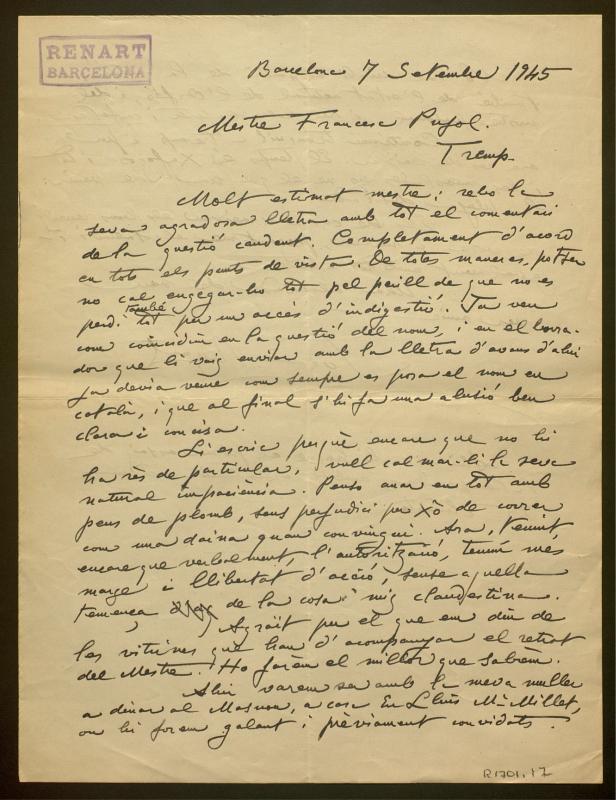 RENART
BARCELONA
Barcelona 7 Setembre 1945
Mestre Francesc Pujol.
Tremp.
Molt estimat mestre: rebo la
seva agradosa lletra amb tot el comentari
de la questió candent. Completament d'acord
en tots els punts de vista. De totes maneres, potser
no cal engegar-ho tot pel perill de que no es
perdi també tot per un accés d'indigestió. Ja veu
com coincidim en la questió del nom, i en el borra-
dor que li vaig enviar amb la lletra d'avans d'ahir
ja devia veure com sempre es posa el nom en
català, i que al final s'hi fa una alusió ben
clara i concisa.
Li escric perquè encare que no hi
ha rès de particular, vull calmar-li la seva
natural impaciència. Penso anar en tot amb
peus de plomb, sens perjudici per xò de correr
com una daina quan convingui. Ara, tenint,
encare que verbalment, l'autorització, tenim mes
marge i llibertat d'acció, sense aquella
temença de la cosa mig clandestina.
Agraït per el que em diu de
les vitrines que han d'acompanyar el retrat
del Mestre. Ho farèm el millor que sabrèm.
Ahir varem ser amb la meva muller
a dinar al Masnou, a casa En Lluis Mª Millet,
on hi forem galant i prèviament convidats.
R.1701.17